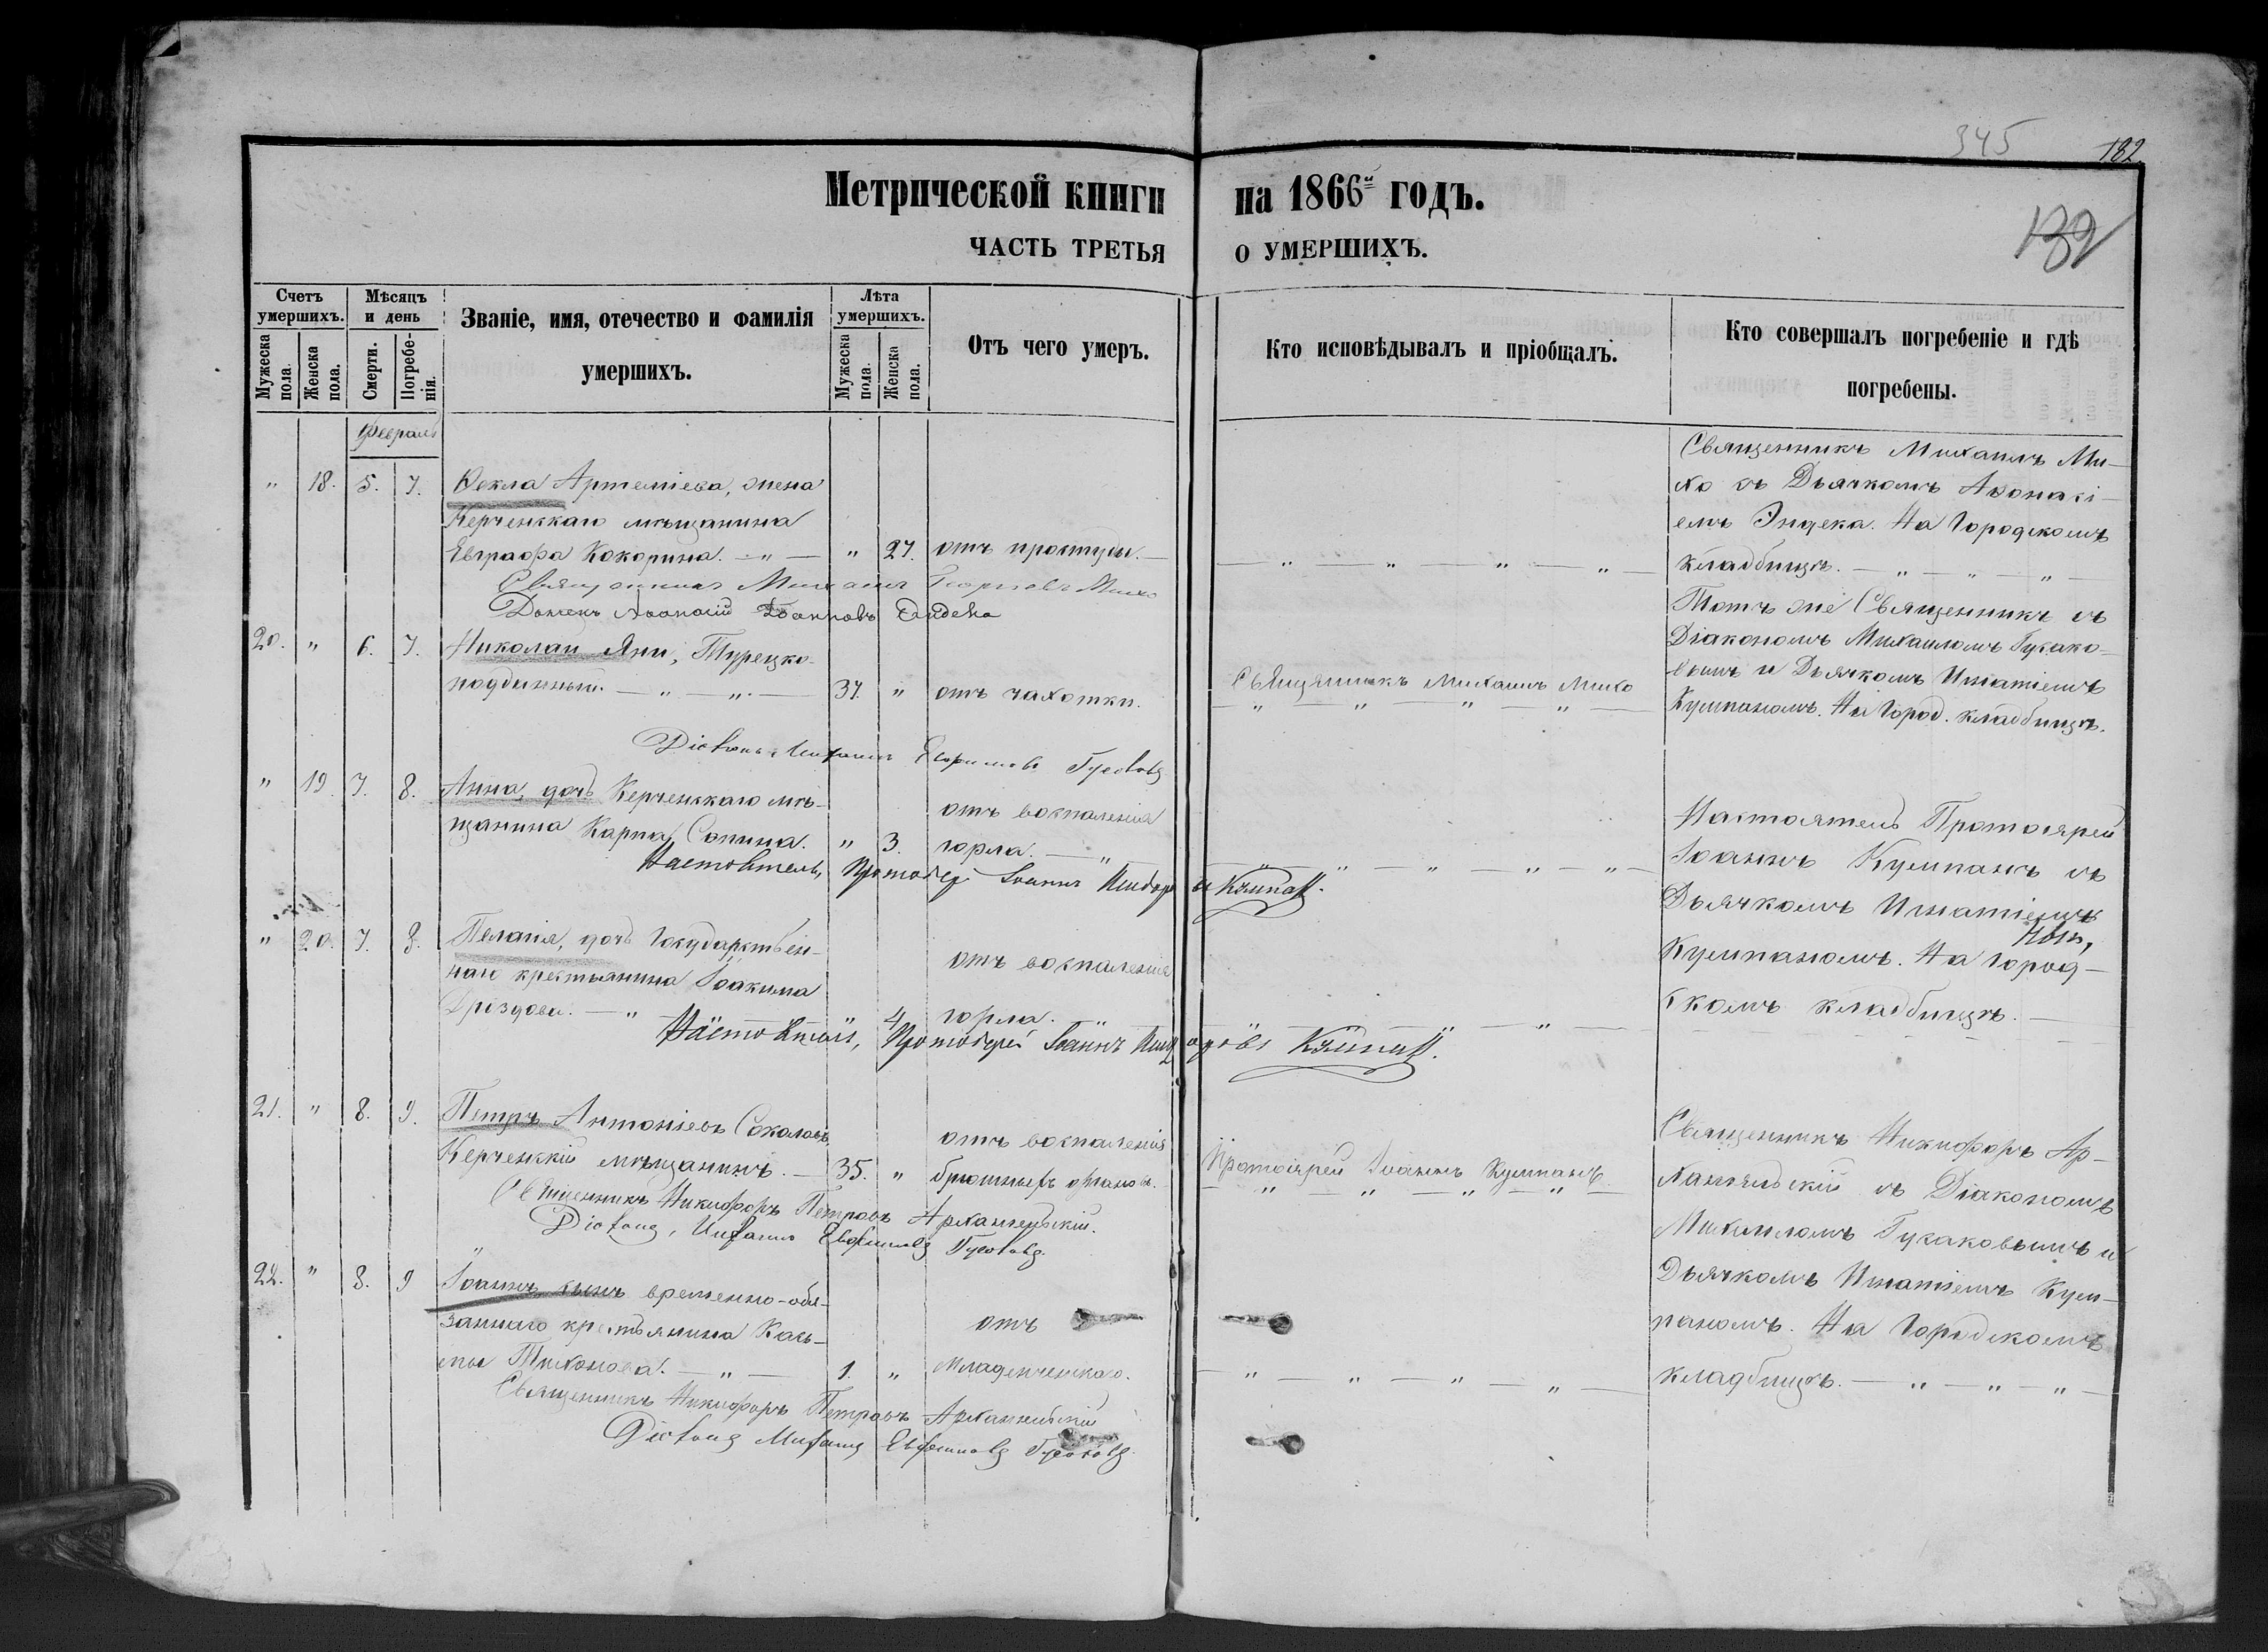 345
182
Метрической книги на 1866й годъ.
132
ЧАСТЬ ТРЕТЬЯ О УМЕРШИХЪ.
Счетъ умершихъ.
Мужеска пола.
Женска пола.
Мѣсяцъ и день
Смерти.
Погребенія.
Званіе, имя, отечество и фамилія умершихъ.
Лѣта умершихъ.
Мужеска пола.
Женска пола.
Отъ чего умеръ.
Кто исповѣдывалъ и пріобщалъ.
Кто совершалъ погребеніе и гдѣ погребены.
Февраль
" 18. 5. 7. Ѳекла Артеміева, жена
Керченскаго мѣщанина
Евграфа Кокорина. — " — " 27. отъ простуды. —
— " — " — " — " —
Священникъ Михаилъ Ми-
хо съ Дьячкомъ Аѳонасі-
емъ Эндека. На Городскомъ
кладбищѣ. — " — " — " —
Священникъ Михаилъ Георгіевъ Михо
Дьячекъ Аѳонасій Іоанновъ Ендека
20. " 6. 7. Николай Яни, Турецко-
подданный. — " — " — 37. " отъ чахотки.
Священникъ Михаилъ Михо
— " — " — " — " —
Тотъ же Священникъ съ
Діакономъ Михаиломъ Гусако-
вымъ и Дьячкомъ Игнатіемъ
Кумпаномъ. На Город. кладбищѣ.
Діаконъ Михаилъ Гусаковъ
" 19. 7. 8. Анна, дочь Керченскаго мѣ-
щанина Карпа Сопина. " 3. отъ воспаленія
горла. — "
— " — " — " — " — " —
Настоятель Протоіерей
Іоаннъ Кумпанъ съ
Дьячкомъ Игнатіемъ
Кумпаномъ. На Город-
скомъ кладбищѣ. —
Настоятель, Протоіерей Іоаннъ Кумпанъ.
" 20. 7. 8. Пелагія, дочь Государствен-
наго крестьянина Іоакима
Дроздова. — " 4. отъ воспаленія
горла. — "
Настоятель, Протоіерей Іоаннъ Кумпанъ.
21. " 8. 9. Петръ Антоніевъ Соколовъ,
Керченскій мѣщанинъ. — 35. " отъ воспаленія
брюшныхъ органовъ.
Протоіерей Іоаннъ Кумпанъ.
— " — " — " — " —
Священникъ Никифоръ Ар-
хангельскій съ Діакономъ
Михаиломъ Гусаковымъ и
Дьячкомъ Игнатіемъ Кум-
паномъ. На Городскомъ
кладбищѣ. — " — " — " —
Священникъ Никифоръ Петровъ Архангельскій.
Діаконъ, Михаилъ Евфимовъ Гусаковъ.
22. " 8. 9 Іоаннъ сынъ временно-обя-
заннаго крестьянина Козь-
мы Тихонова. — " — 1. " отъ
младенческаго.
— " — " — " — " —
Священникъ Никифоръ Петровъ Архангельскій
Діаконъ Михаилъ Евфимовъ Гусаковъ.